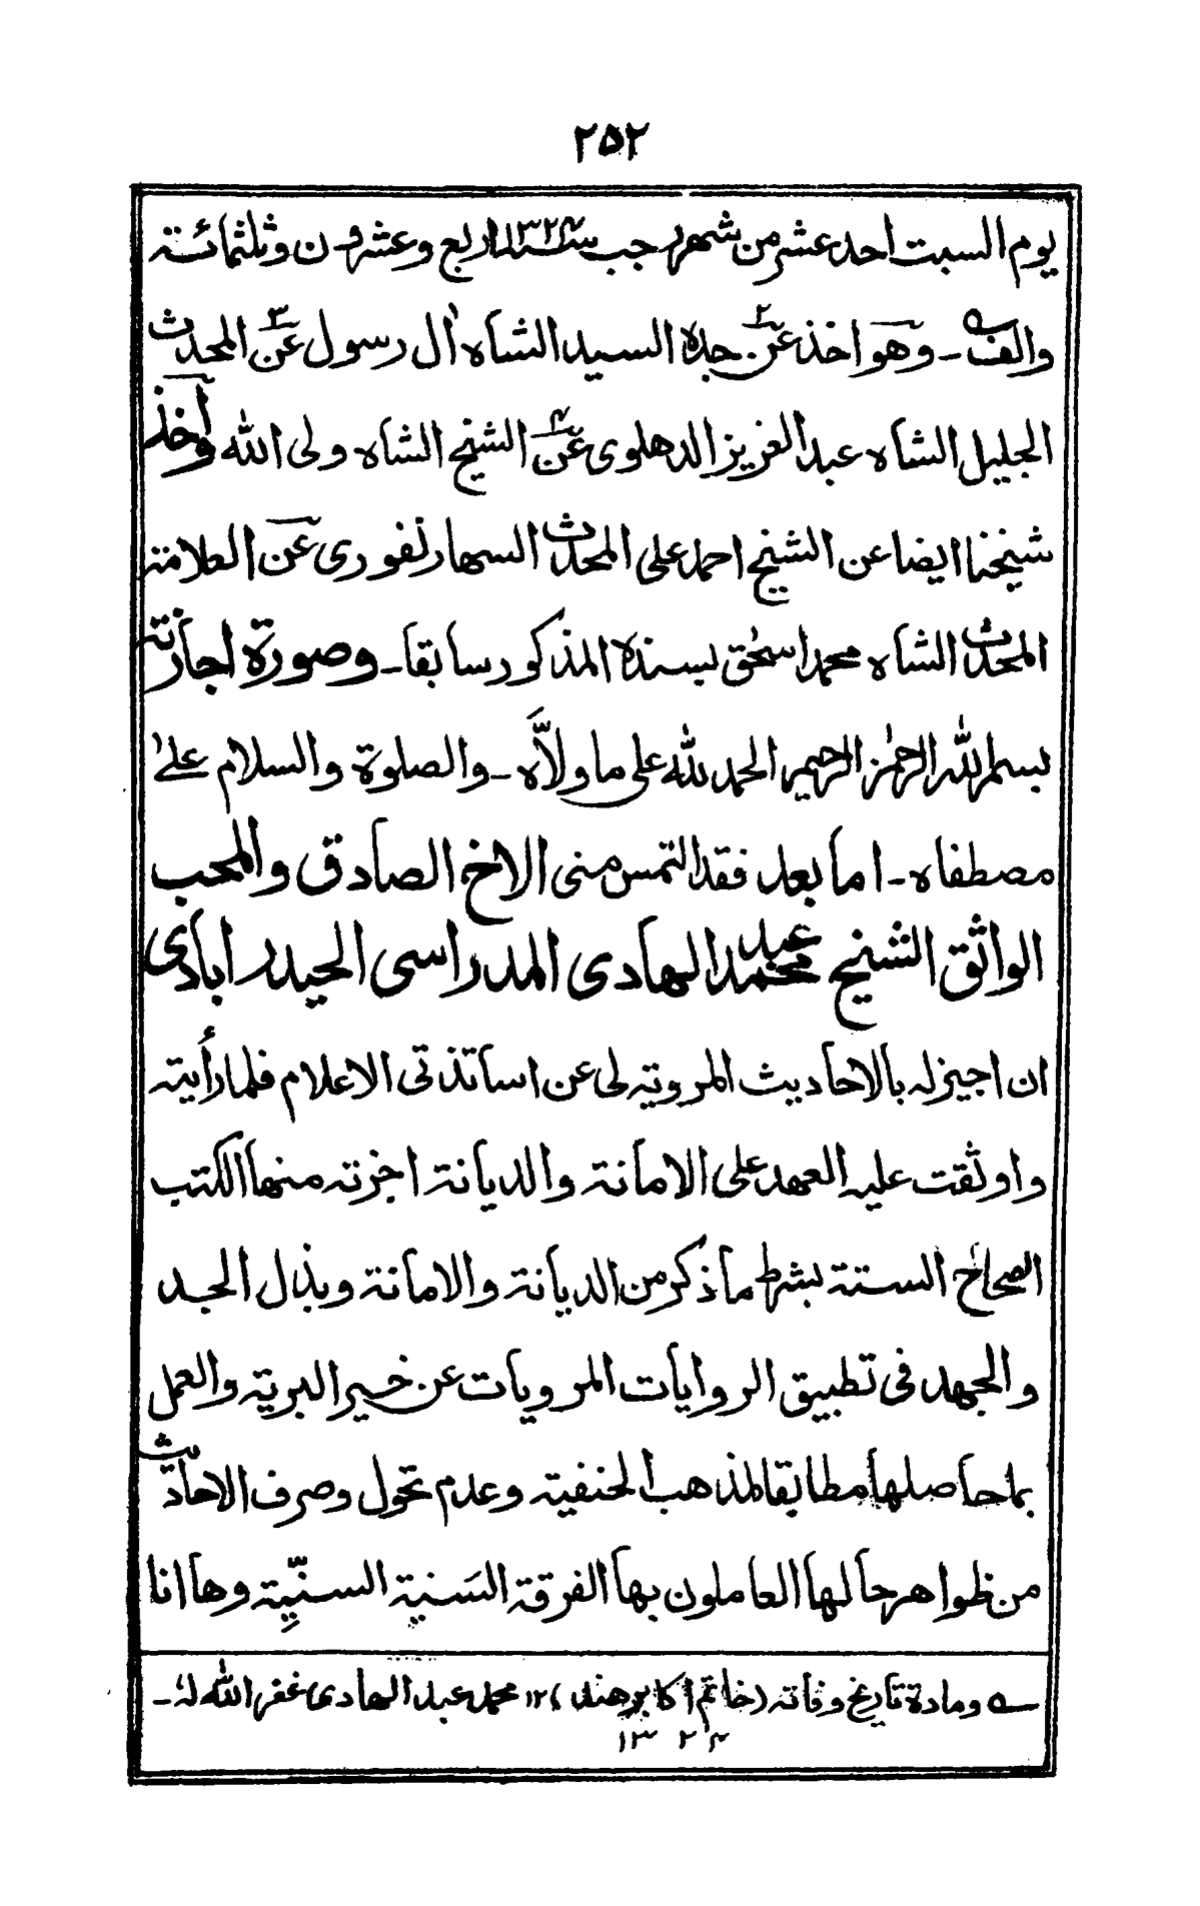 ٢٥٢
يوم السبت احد عشر من شهر رجب سنة ١٣٢٤ اربع وعشرون وثلثمائة
والف ؎ ـ وهو اخذ عن٢ جده السيد الشاه اٰل رسول عن٣ المحدث
الجليل الشاه عبد العزيز الدهلوى عن٤ الشيخ الشاه ولى الله واَخذ
شيخنا ايضا عن الشيخ احمد على المحدث السهارنفورى عن العلامة
المحدث الشاه محمد اسحٰق بسنده المذكور سابقا ـ وصورة اجازته
بسم الله الرحمٰن الرحيم الحمد لله على ما ولّاه ـ والصلوة والسلام علىٰ
مصطفاه ـ اما بعد فقد التمس منى الاخ الصادق والمحب
الواثق الشيخ محمد عبد الهادى المدراسى الحيدر ابادى
ان اجيز له بالاحاديث المروية لى عن اساتذتى الاعلام فلما رأيته
واوثقت عليه العهد على الامانة والديانة اجزته منها الكتب
الصحاح الستة بشرط ما ذكر من الديانة والامانة وبذل الجد
والجهد فى تطبيق الروايات المرويات عن خير البرية والعمل
بما حاصلها مطابقا لمذهب الحنفية وعدم تحول وصرف الاحاديث
من ظواهر حالها العاملون بها الفرقة السَنية السنّيِة وها انا
؎ ومادة تاريخ وفاته (خاتم اكابر هند) ١٢ محمد عبد الهادى غفر الله لهٗ ـ
١٣٢٤